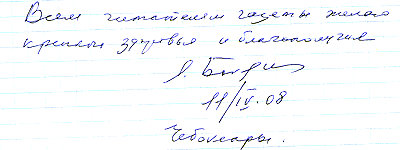 Всем читателям газеты желаю
крепкого здоровья и благополучия
11/IV-08
Чебоксары.